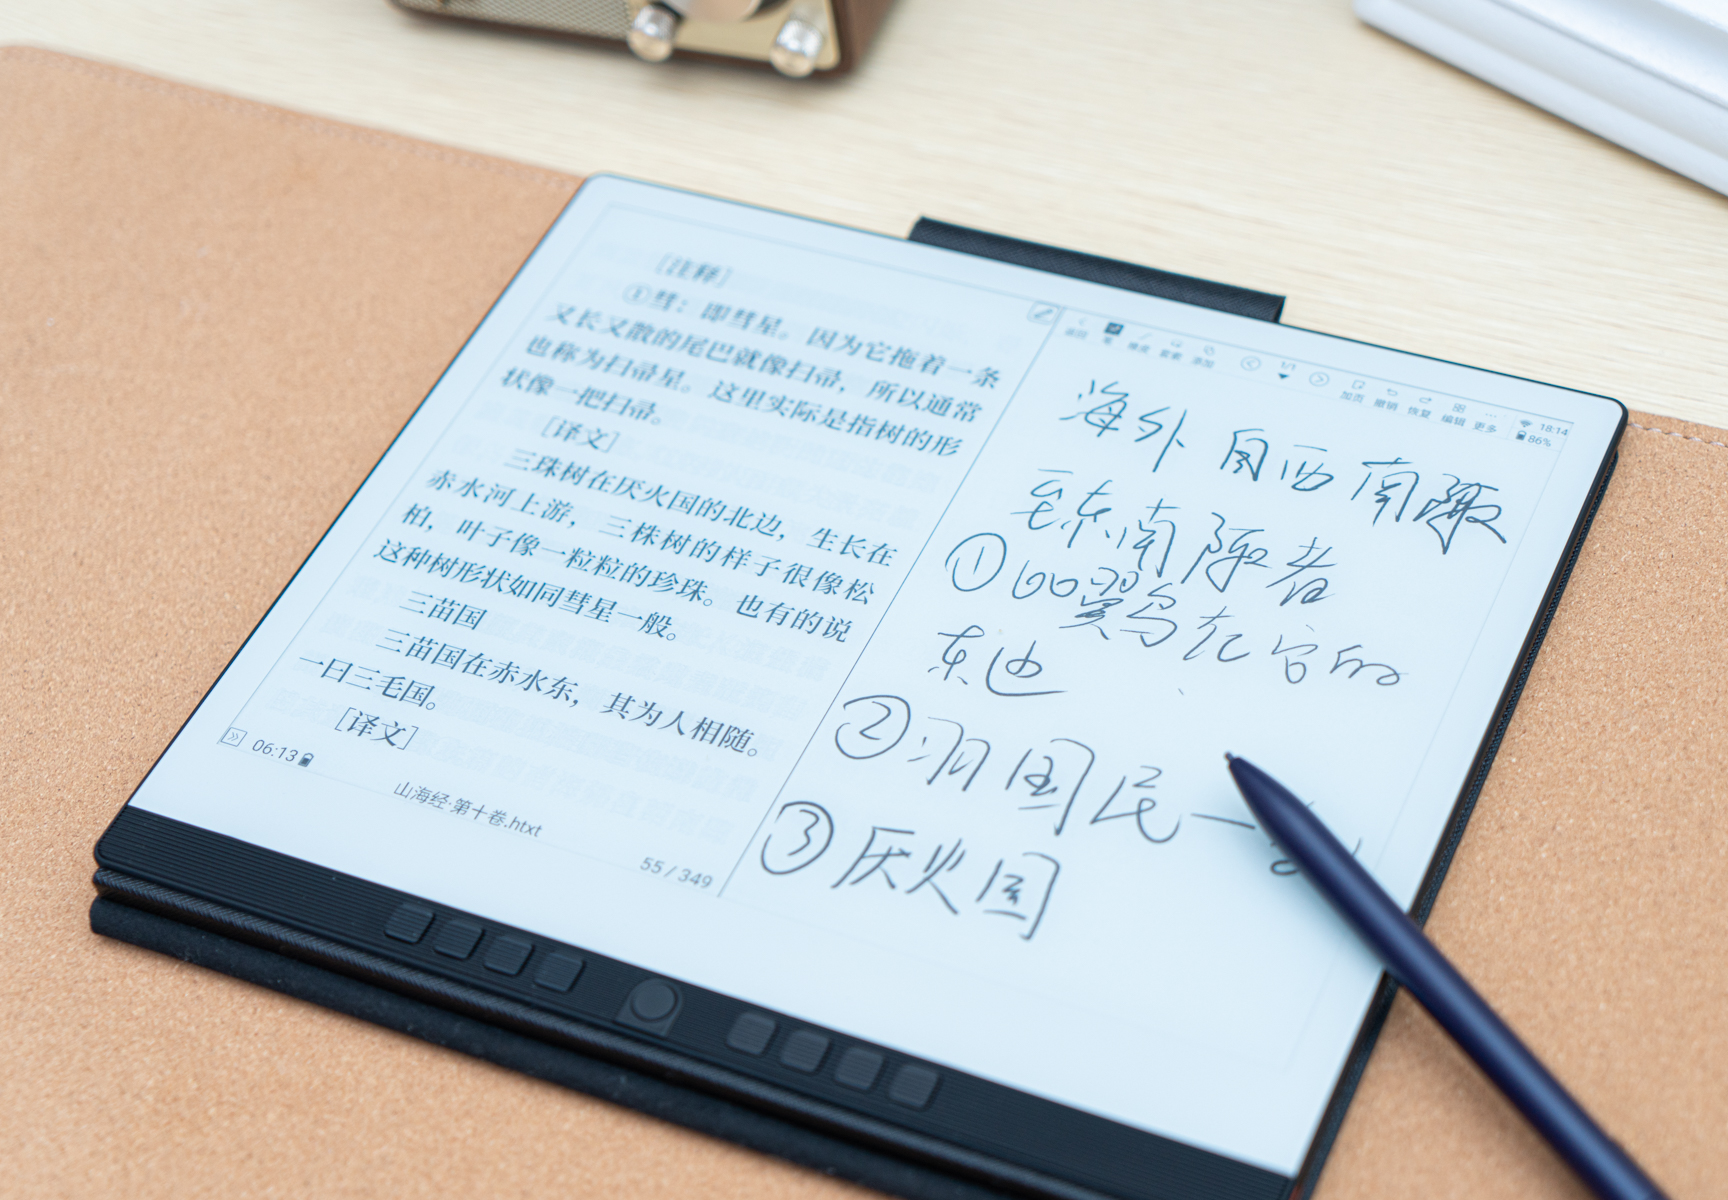 [注释]
①彗：即彗星。因为它拖着一条
又长又散的尾巴就像扫帚，所以通常
也称为扫帚星。这里实际是指树的形
状像一把扫帚。
[译文]
三珠树在厌火国的北边，生长在
赤水河上游，三株树的样子很像松
柏，叶子像一粒粒的珍珠。也有的说
这种树形状如同彗星一般。
三苗国
三苗国在赤水东，其为人相随。
一曰三毛国。
[译文]
06:13
山海经·第十卷.htxt
55 / 349
返回 笔 橡皮 套索 添加 1/1 加页 撤销 恢复 编辑 更多 18:14
86%
海外自西南陬
至东南陬者
①比翼鸟在它的
东边
②羽国民一
③厌火国